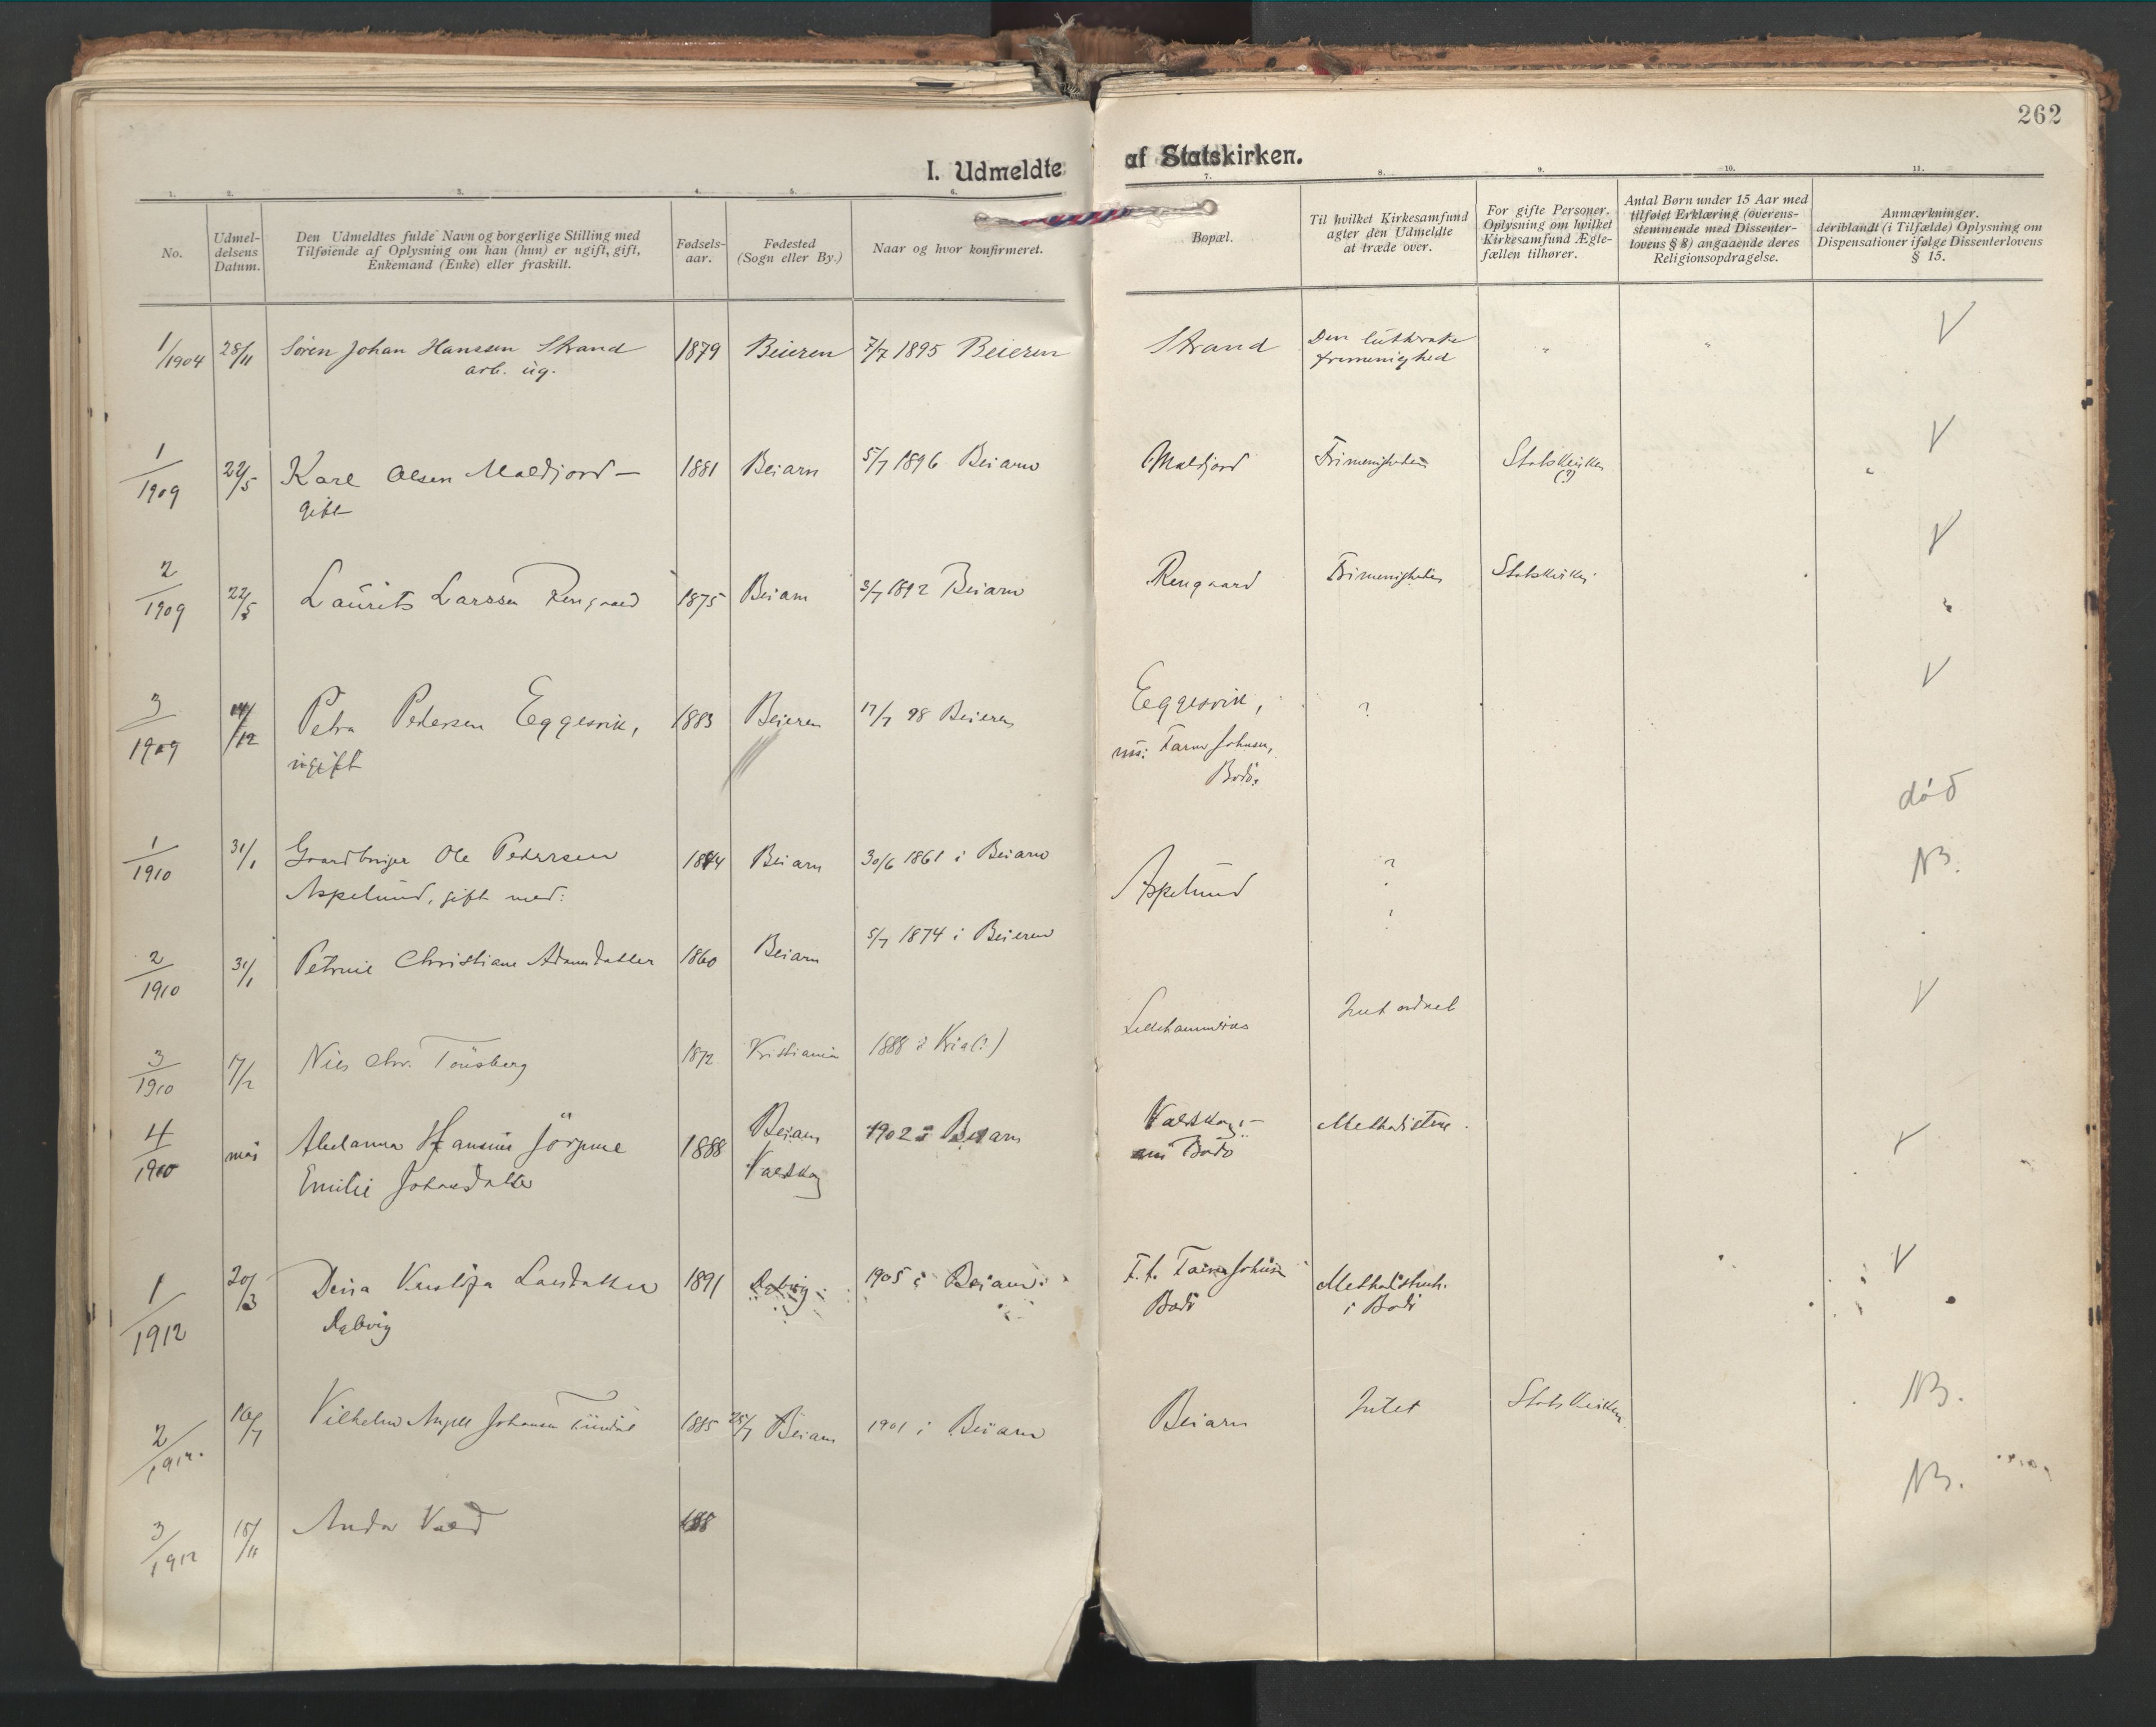 262
I. Udmeldte af Statskirken.
1. 2. 3. 4. 5. 6. 7. 8. 9. 10. 11.
No.
Udmel-
delsens
Datum.
Den Udmeldtes fulde Navn og borgerlige Stilling med
Tilføiende af Oplysning om han (hun) er ugift, gift,
Enkemand (Enke) eller fraskilt.
Fødsels-
aar.
Fødested
(Sogn eller By.)
Naar og hvor konfirmeret.
Bopæl.
Til hvilket Kirkesamfund
agter den Udmeldte
at træde over.
For gifte Personer.
Oplysning om hvilket
Kirkesamfund Ægte-
fællen tilhører.
Antal Børn under 15 Aar med
tilføiet Erklæring (overens-
stemmende med Dissenter-
lovens § 8) angaaende deres
Religionsopdragelse.
Anmærkninger.
deriblandt (i Tilfælde) Oplysning om
Dispensationer ifølge Dissenterlovens
§ 15.
1/1904 28/11 Sören Johan Hanssen Strand 1879 Beieren 7/7 1895 Beieren Strand Den lutherske " " V
arb. ug. frimenighed
1/1909 22/5 Karl Olsen Moldjord – 1881 Beiarn 5/7 1896 Beiarn Moldjord Frimenigheden Statskirken V
gift (?)
2/1909 22/5 Laurits Larssen Rengaard 1875 Beiarn 3/7 1892 Beiarn Rengaard Frimenigheden Statskirken V
3/1909 14/12 Petra Pedersen Eggesvik, 1883 Beieren 17/7 98 Beieren Eggesvik, ? V
ugift
Bodö.
död
1/1910 31/1 Gaardbruger Ole Pedersen Beiarn 30/6 1861 i Beiarn Aspelund ? NB.
Aspelund, gift med:
2/1910 31/1 Petrine Christiane Adamsdatter 1860 Beiarn 5/7 1874 i Beieren
3/1910 17/2 Nils Chr. Tönsberg 1872 Kristiania 1888 i Kria(?) Intet ordnet V
4/1910 mai Hansine Jörgine 1888 Beiarn 1902 i Beiarn Methodisterne. V
Emilie Johansdatter
Bodö
1/1912 20/3 Larsdatter 1891 1905 i Beiarn V
Bodö i Bodö
2/1912. 16/7 Vilhelm Johansen 1885 25/7 Beiarn 1901 i Beiarn Beiarn Intet Statskirken NB.
3/1912 18/11 NB.